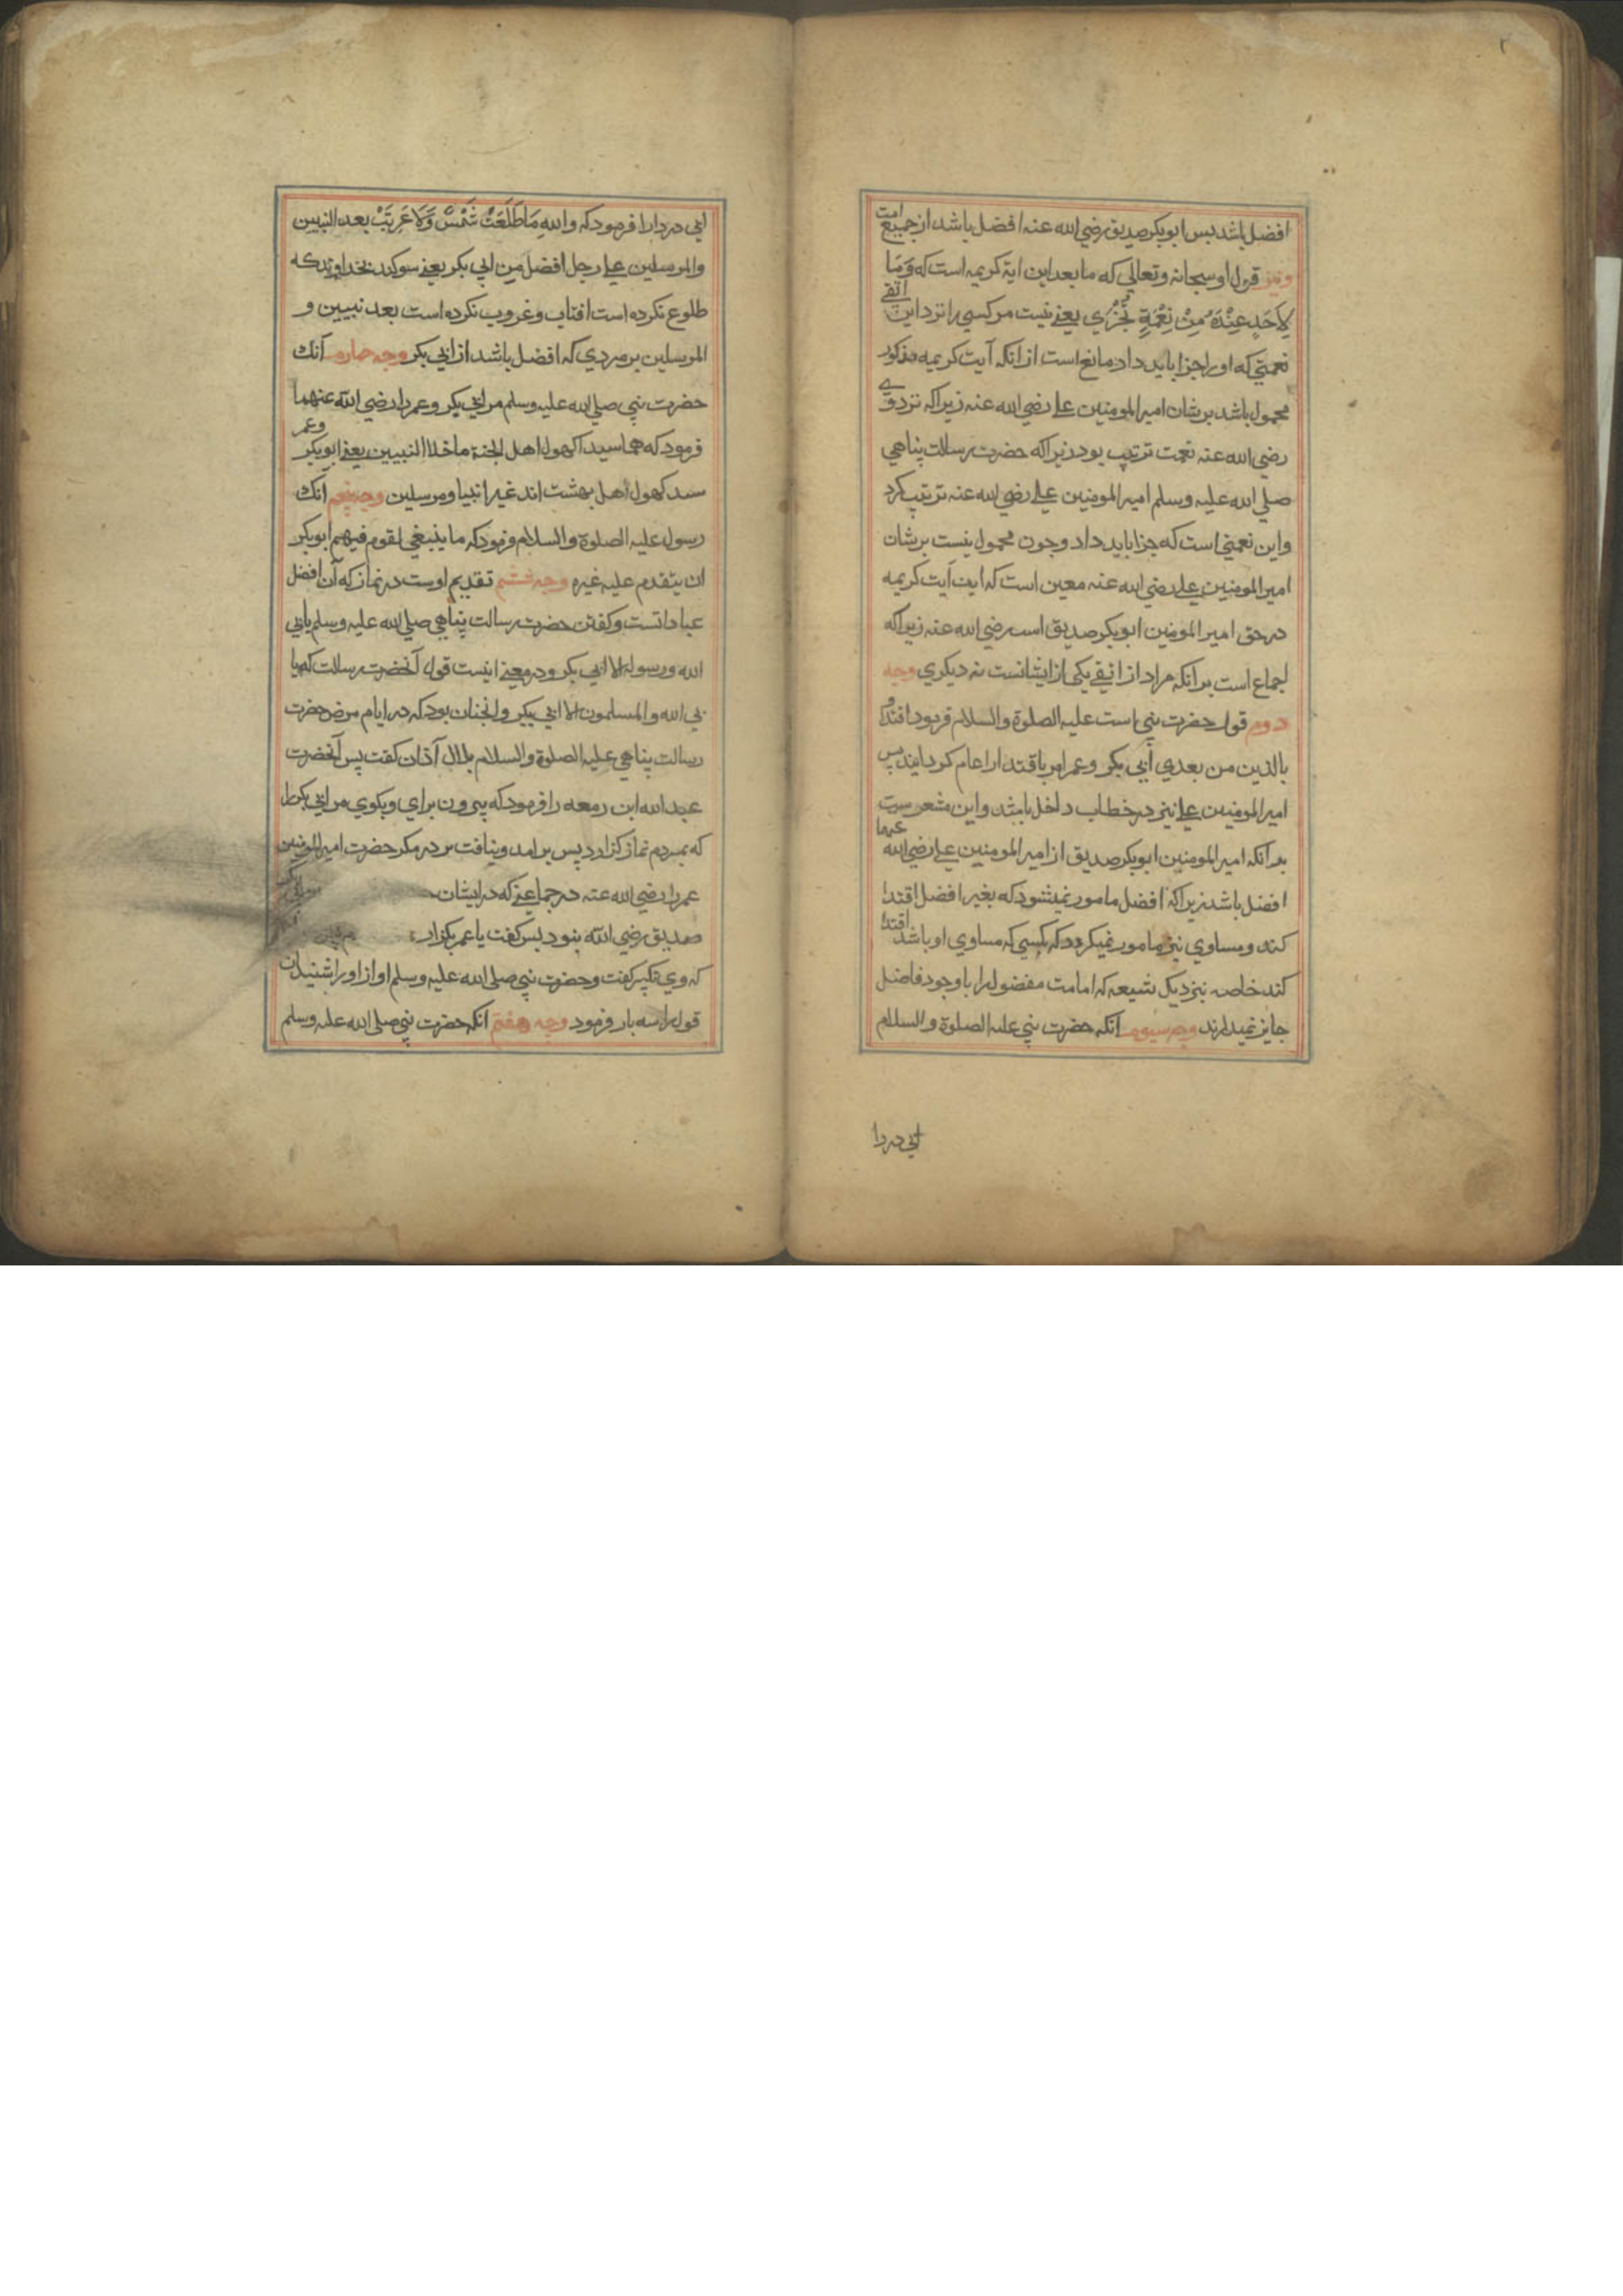 ۲
افضل باشد بس ابو بکر صدیق رضي الله عنه افضل باشد از جمیع امت
ونیز قول او سبحانه وتعالي که ما بعد این ایة کریمه است که وَمَا
لِاَحَدٍ عِنْدَهُ مِنْ نِعْمَةٍ تُجْزٰي یعنے نیست مر کسي را نزد این اتقے
نعمتي که او را جزا باید داد مانع است از انکه آیت کریمه مذکور
محمول باشد بر شان امیر المومنین علے رضي الله عنه زیرا که نزد وے
رضي الله عنه نعمت ترتیب بود زیرا که حضرت رسالت پناهي
صلي الله علیه وسلم امیر المومنین علے رضي الله عنه ترتیب کرد
واین نعمتي است که جزا باید داد وچون محمول نیست بر شان
امیر المومنین علے رضي الله عنه معین است که این آیت کریمه
در حق امیر المومنین ابو بکر صدیق است رضي الله عنه زیرا که
اجماع است بر انکه مراد از اتقے یکي از ایشانست نه دیکري وجه
دوم قول حضرت نبي است علیه الصلوة والسلام فرمود اقتدوا
بالذین من بعدي أبي بکر وعمر امر باقتدا را عام کردانیند پس
امیر المومنین علے نیز در خطاب داخل باشد واین مشعر ست
بد آنکه امیر المومنین ابو بکر صدیق از امیر المومنین علے رضي الله عنهما
افضل باشد زیرا که افضل مامور نمیشود که بغیر افضل اقتدا
کند ومساوي نیز مامور نمیکردد که بکسي که مساوي او باشد اقتدا
کند خاصه نزدیک شیعه که امامت مفضول را با وجود فاضل
جایز نمیدارند وجه سیوم انکه حضرت نبي علیه الصلوة والسلام
ابي دردا
ابي دردا را فرمود که والله مَا طَلَعَتْ شَمْسٌ وَلَا غَرَبَتْ بعد النبیین
والمرسلین علے رجل افضل مِن ابي بکر یعنے سوکند بخداوندکه
طلوع نکرده است افتاب وغروب نکرده است بعد نبیین و
المرسلین بر مردي که افضل باشد از ابي بکر وجه چارم آنک
حضرت نبي صلي الله علیه وسلم مر ابي بکر وعمر را رضي الله عنهما
فرمود که هما سیدا کهول اهل الجنة ما خلا النبیین یعنے ابو بکر وعمر
سید کهول اهل بهشت اند غیر انبیا ومرسلین وجه پنجم آنک
رسول علیه الصلوة والسلام فرمود که ما ینبغي لقوم فیهم ابو بکر
ان یتقدم علیه غیره وجه ششم تقدیم اوست در نماز که آن افضل
عباداتست وکفتن حضرت رسالت پناهي صلي الله علیه وسلم یابي
الله ورسوله الا ابي بکر ودر معنے اینست قول آنحضرت رسالت که یا
بي الله والمسلمون الا ابي بکر وانچنان بود که در ایام مرض حضرت
رسالت پناهي علیه الصلوة والسلام بلال آذان کفت پس آنحضرت
عبد الله ابن زمعه را فرمود که بیرون براي وبکوي مر ابي بکر را
که بمردم نماز کزارد پس بر امد ونیافت بر در مکر حضرت امیر المومنین
عمر را رضي الله عنه در جماعتے که در ایشان
صدیق رضي الله نبود بس کفت یا عمر بکزار
که وي تکبیر کفت وحضرت نبي صلي الله علیه وسلم اواز او را شنید ان
قول را سه بار فرمود وجه هفتم انکه حضرت نبي صلي الله علیه وسلم